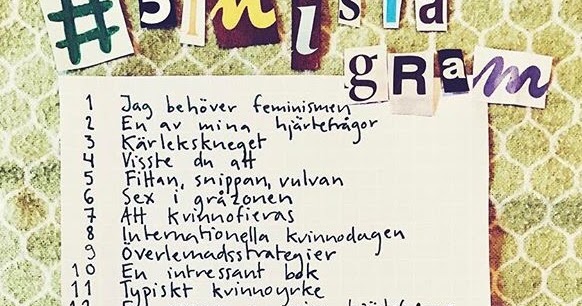 #5inista
gram
1 Jag behöver feminismen
2 En av mina hjärtefrågor
3 Kärlekskneget
4 Visste du att
5 Fittan, snippan, vulvan
6 Sex i gråzonen
7 Att kvinnofieras
8 Internationella kvinnodagen
9 Överlevnadsstrategier
10 En intressant bok
11 Typiskt kvinnoyrke
12